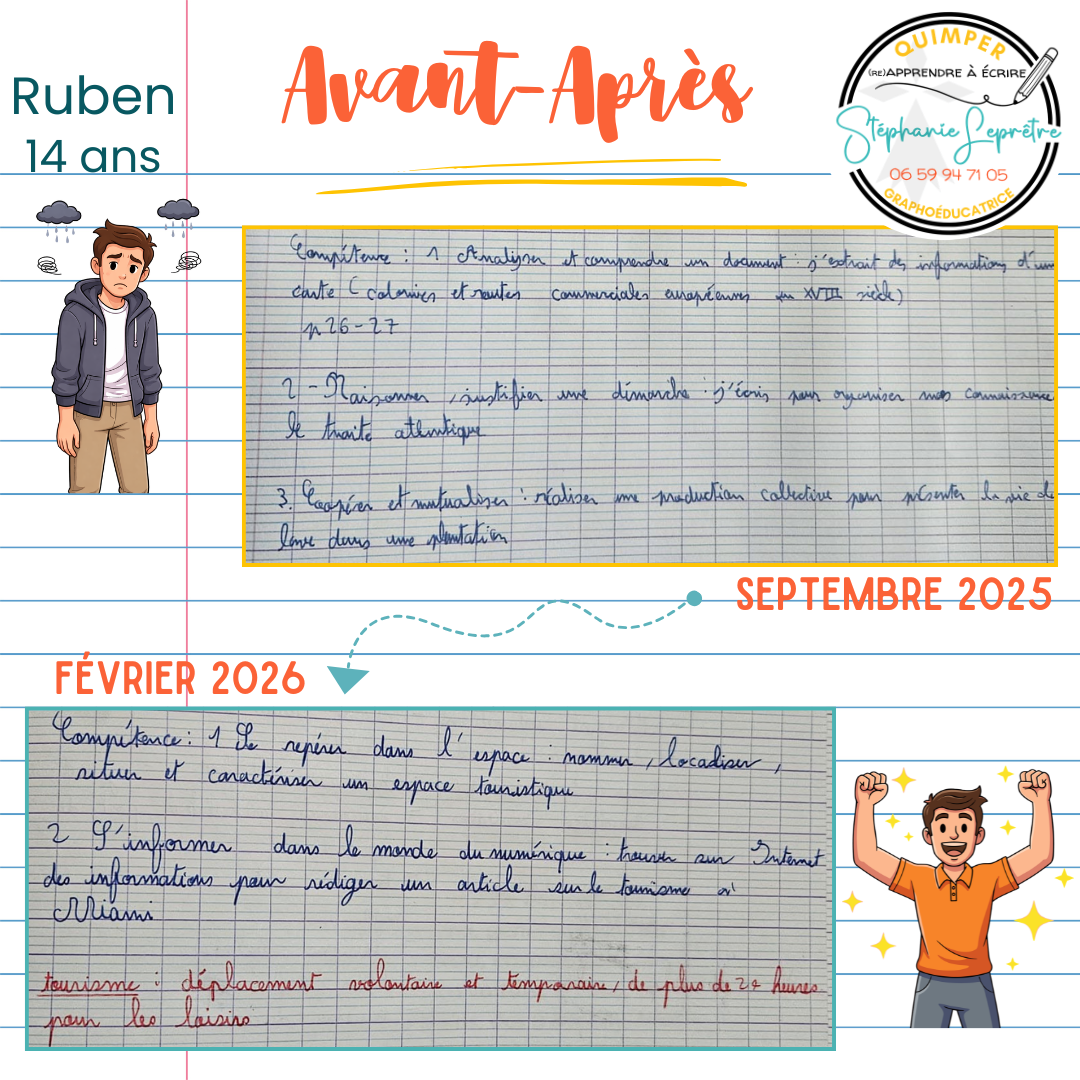 Ruben
14 ans
Avant-Après
QUIMPER
(RE)APPRENDRE À ÉCRIRE
Stéphanie Leprêtre
06 59 94 71 05
GRAPHOÉDUCATRICE
Compétence : 1 Analyser et comprendre un document : j'extrait des informations d'une
carte ( colonies et routes commerciales européennes au XVIII siècle)
p 26-27
2 - Raisonner, justifier une démarche : j'écris pour organiser mes connaissance
le traite atlentique
3. Coopérer et mutualiser : réaliser une production collective pour présenter la vie de
dans une plantation
SEPTEMBRE 2025
FÉVRIER 2026
Compétence : 1 Se repérer dans l'espace : nommer, localiser,
situer et caractériser un espace touristique
2 S'informer dans le monde du numérique : trouver sur Internet
des informations pour rédiger un article sur le tourisme à
Miami
tourisme : déplacement volontaire et temporaire, de plus de 24 heures
pour les loisirs